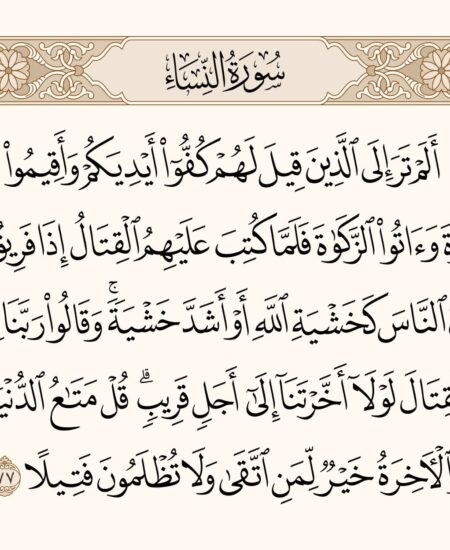 سُورَةُ النِّسَاءِ
أَلَمْ تَرَ إِلَى ٱلَّذِينَ قِيلَ لَهُمْ كُفُّوٓا۟ أَيْدِيَكُمْ وَأَقِيمُوا۟
ةَ وَءَاتُوا۟ ٱلزَّكَوٰةَ فَلَمَّا كُتِبَ عَلَيْهِمُ ٱلْقِتَالُ إِذَا فَرِيقٌ
ٱلنَّاسَ كَخَشْيَةِ ٱللَّهِ أَوْ أَشَدَّ خَشْيَةً ۚ وَقَالُوا۟ رَبَّنَا
قِتَالَ لَوْلَآ أَخَّرْتَنَآ إِلَىٰٓ أَجَلٍ قَرِيبٍ ۗ قُلْ مَتَـٰعُ ٱلدُّنْيَ
ٱلْـَٔاخِرَةُ خَيْرٌ لِّمَنِ ٱتَّقَىٰ وَلَا تُظْلَمُونَ فَتِيلًا ٧٧